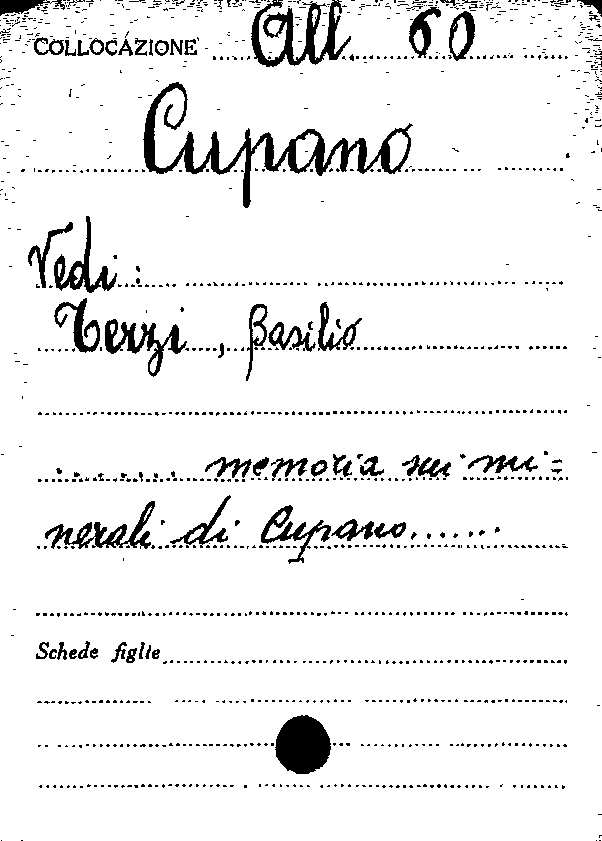 COLLOCAZIONE All. 60
Cupano
Vedi :
Terzi, Basilio
....... memoria sui mi=
nerali di Cupano.......
Schede figlie